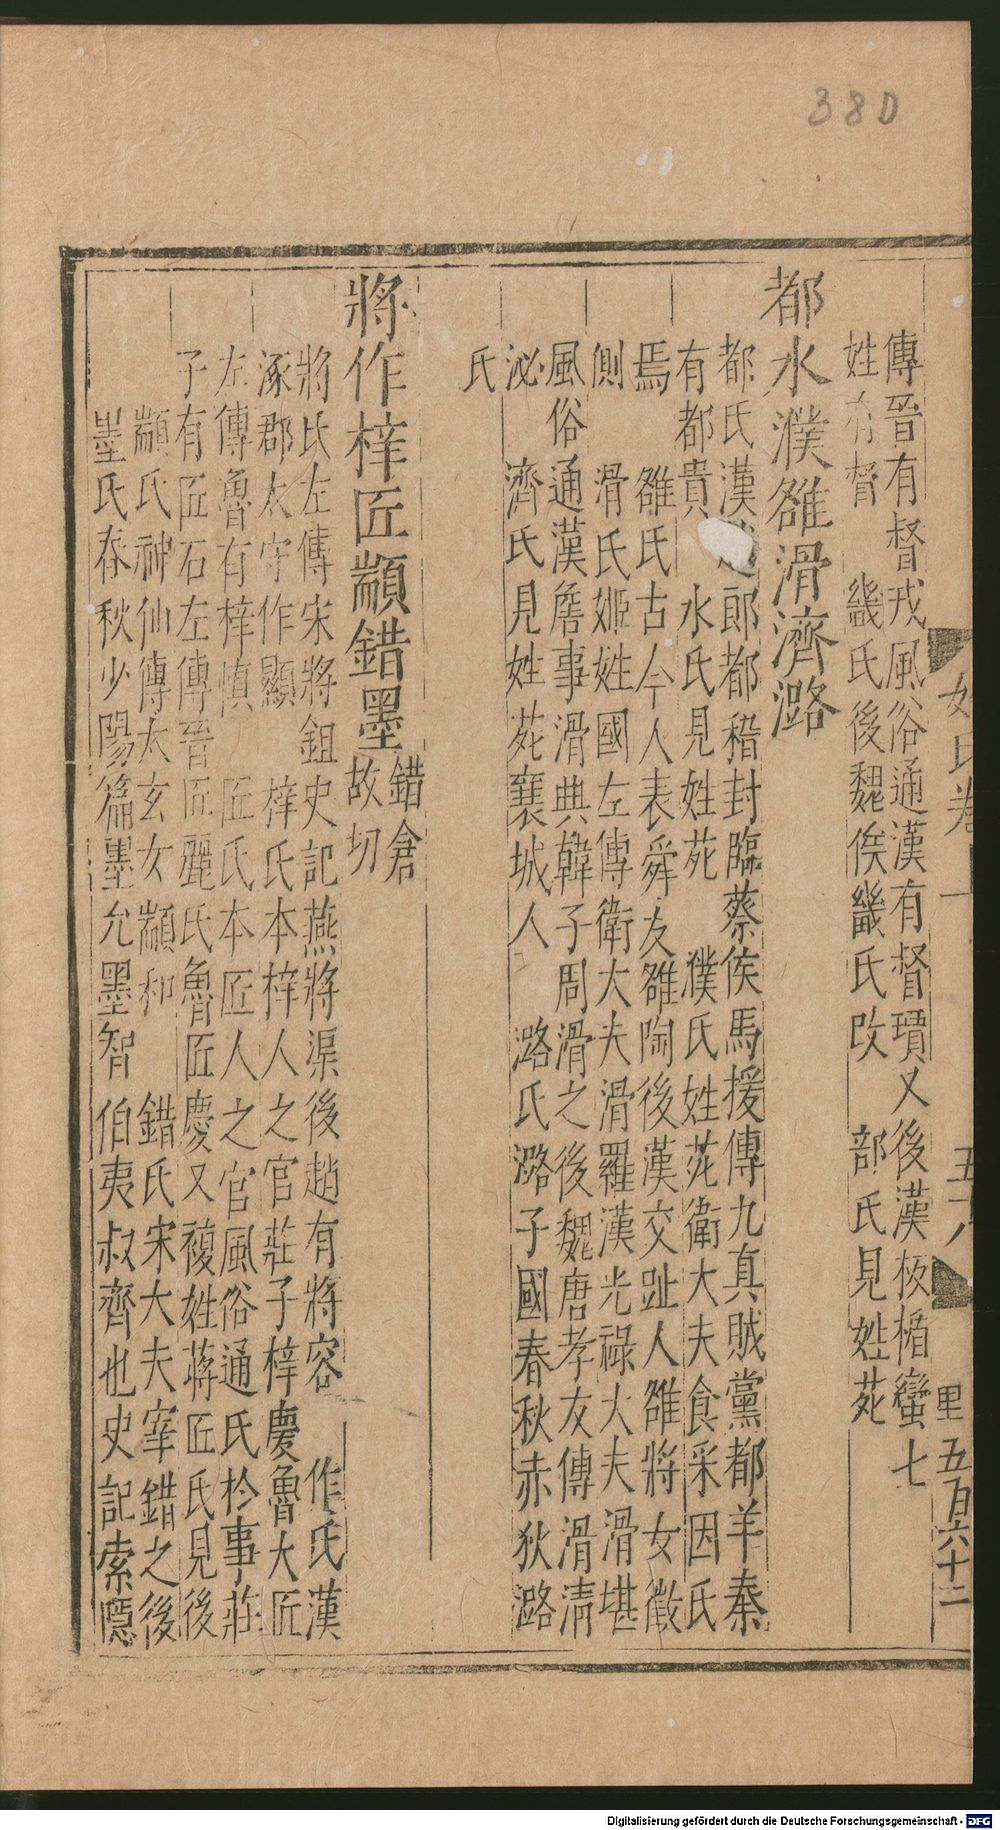 38D
姓氏卷 一 五十八 里 五百六十二
傳晉有督戎風俗通漢有督瓚又後漢板楯蠻七
姓有督 畿氏後魏俟畿氏改 部氏見姓苑
都水濮雒滑濟潞
都氏漢 郎都稽封臨蔡侯馬援傳九真賊黨都羊秦
有都貴 水氏見姓苑 濮氏姓苑衛大夫食采因氏
焉 雒氏古今人表舜友雒陶後漢交趾人雒將女徵
側 滑氏姬姓國左傳衛大夫滑羅漢光祿大夫滑堪
風俗通漢詹事滑典韓子周滑之後魏唐孝友傳滑清
泌 濟氏見姓苑襄城人 潞氏潞子國春秋赤狄潞
氏
將作梓匠顓錯墨 錯倉
故切
將氏左傳宋將鉏史記燕將渠後趙有將容 作氏漢
涿郡太守作顯 梓氏本梓人之官莊子梓慶魯大匠
左傳魯有梓慎 匠氏本匠人之官風俗通氏於事莊
子有匠石左傳晉匠麗氏魯匠慶又複姓蔣匠氏見後
顓氏神仙傳太玄女顓和 錯氏宋大夫宰錯之後
墨氏春秋少陽篇墨允墨智伯夷叔齊也史記索隱
Digitalisierung gefördert durch die Deutsche Forschungsgemeinschaft - DFG